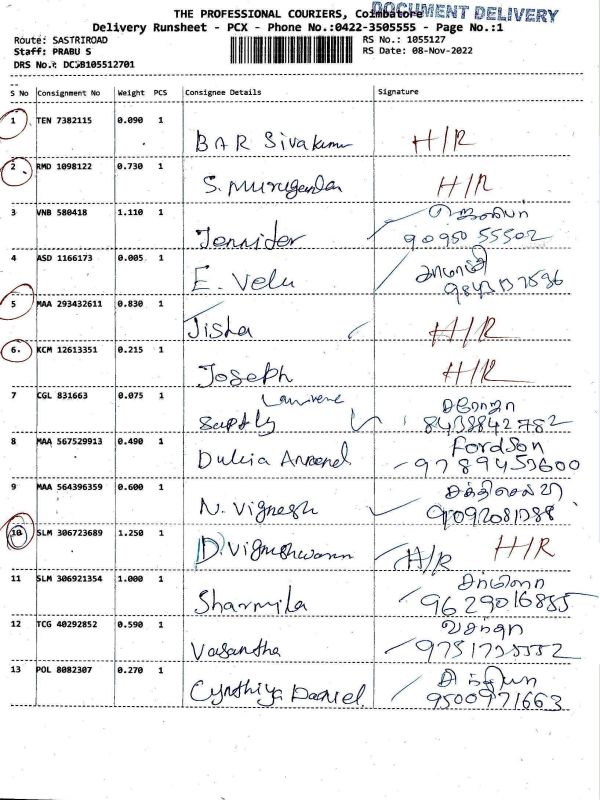 DOCUMENT DELIVERY
THE PROFESSIONAL COURIERS, Coimbatore
Delivery Runsheet - PCX - Phone No.:0422-3505555 - Page No.:1
Route: SASTRIROAD
RS No.: 1055127
Staff: PRABU S
RS Date: 08-Nov-2022
DRS No.: DCJB105512701
S No Consignment No Weight PCS Consignee Details Signature
1 TEN 7382115 0.090 1 BAR Sivakumar H/R
2 RMD 1098122 0.730 1 S. Murugandan H/R
3 VNB 580418 1.110 1 Jennider
90950 55502
4 ASD 1166173 0.005 1 E. Velu
5 MAA 293432611 0.830 1 Jisha H/R
6. KCM 12613351 0.215 1 Joseph H/R
7 CGL 831663 0.075 1
சரோஜா
8438842782
8 MAA 567529913 0.490 1 Dulcia
Fordson
9789453600
9 MAA 564396359 0.600 1 N. Vignesh
10 SLM 306723689 1.250 1 D. Vigneshwaran H/R H/R
11 SLM 306921354 1.000 1 Sharmila
9629016855
12 TCG 40292852 0.590 1 Vasantha
வசந்தா
13 POL 8082307 0.270 1 Cynthiya Daniel
9500971663